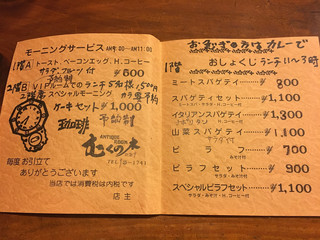 モーニングサービス AM9:00〜AM11:00
1階A トースト、ベーコンエッグ、H.コーヒー
サラダ、フルーツ付 ¥600
予約制
2階B VIPルームでのランチ5名様1,500
スペシャルモーニング
ケーキセット ¥1,000
珈琲 予約制
ANTIQUE ROOM
むくの木
毎度お引立て
ありがとうございます
当店では消費税は内税です
店主
おむすび又はカレーで
1階 おしょくじランチ11〜3時
ミートスパゲティ ¥800
スパゲティセット ¥1,100
サラダ・H.コーヒー付
イタリアンスパゲティ ¥1,300
山菜スパゲティ ¥1,100
ピラフ ¥700
みそ汁付
ピラフセット ¥900
サラダ・みそ汁付
スペシャルピラフセット ¥1,100
サラダ・みそ汁・H.コーヒー付